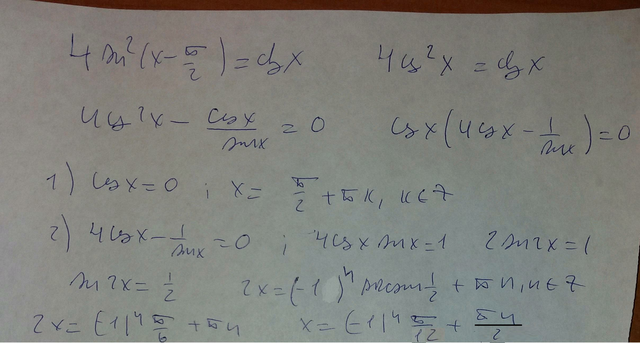 4 sin²(x - π/2) = ctg x    4 cos²x = ctg x
4 cos²x - cos x / sin x = 0    cos x (4 cos x - 1/sin x) = 0
1) cos x = 0 ; x = π/2 + πk, k ∈ Z
2) 4 cos x - 1/sin x = 0 ; 4 cos x sin x = 1    2 sin 2x = 1
sin 2x = 1/2    2x = (-1)ⁿ arcsin 1/2 + πn, n ∈ Z
2x = (-1)ⁿ π/6 + πn    x = (-1)ⁿ π/12 + πn/2